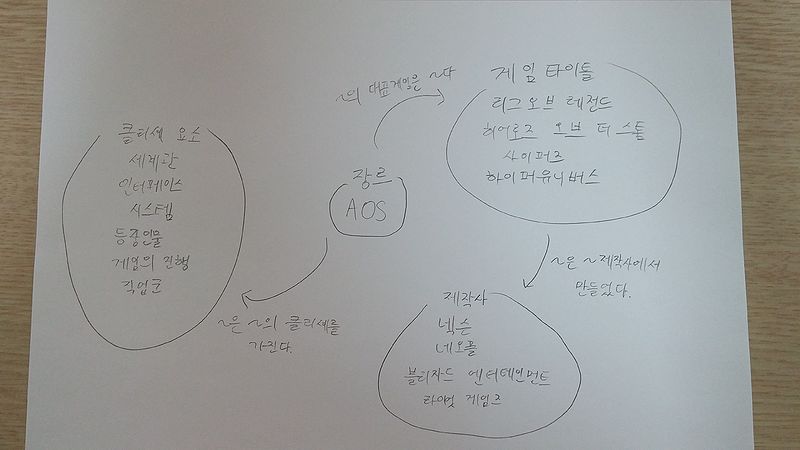 클리셰 요소
세계관
인터페이스
시스템
등장인물
게임의 진행
직업군
~은 ~의 클리셰를
가진다.
장르
AOS
~의 대표게임은 ~다
게임 타이틀
리그 오브 레전드
히어로즈 오브 더 스톰
사이퍼즈
하이퍼유니버스
~은 ~제작사에서
만들었다.
제작사
넥슨
네오플
블리자드 엔터테인먼트
라이엇 게임즈